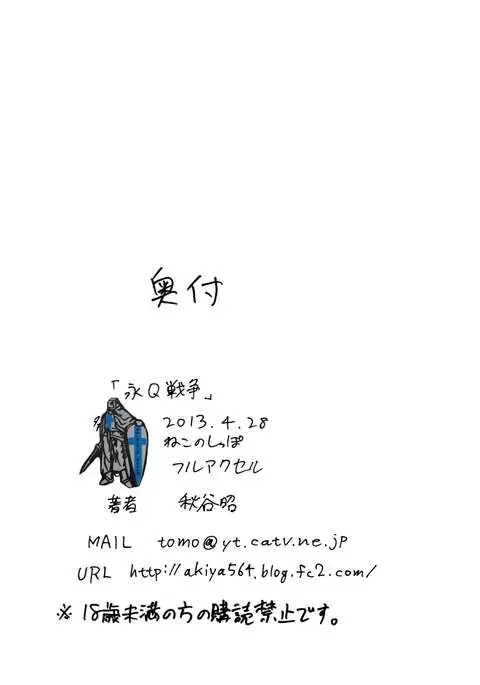 奥付
「永Q戦争」
2013.4.28
ねこのしっぽ
フルアクセル
著者 秋谷昭
MAIL tomo@yt.catv.ne.jp
URL http://akiya564.blog.fc2.com/
※18歳未満の方の購読禁止です。